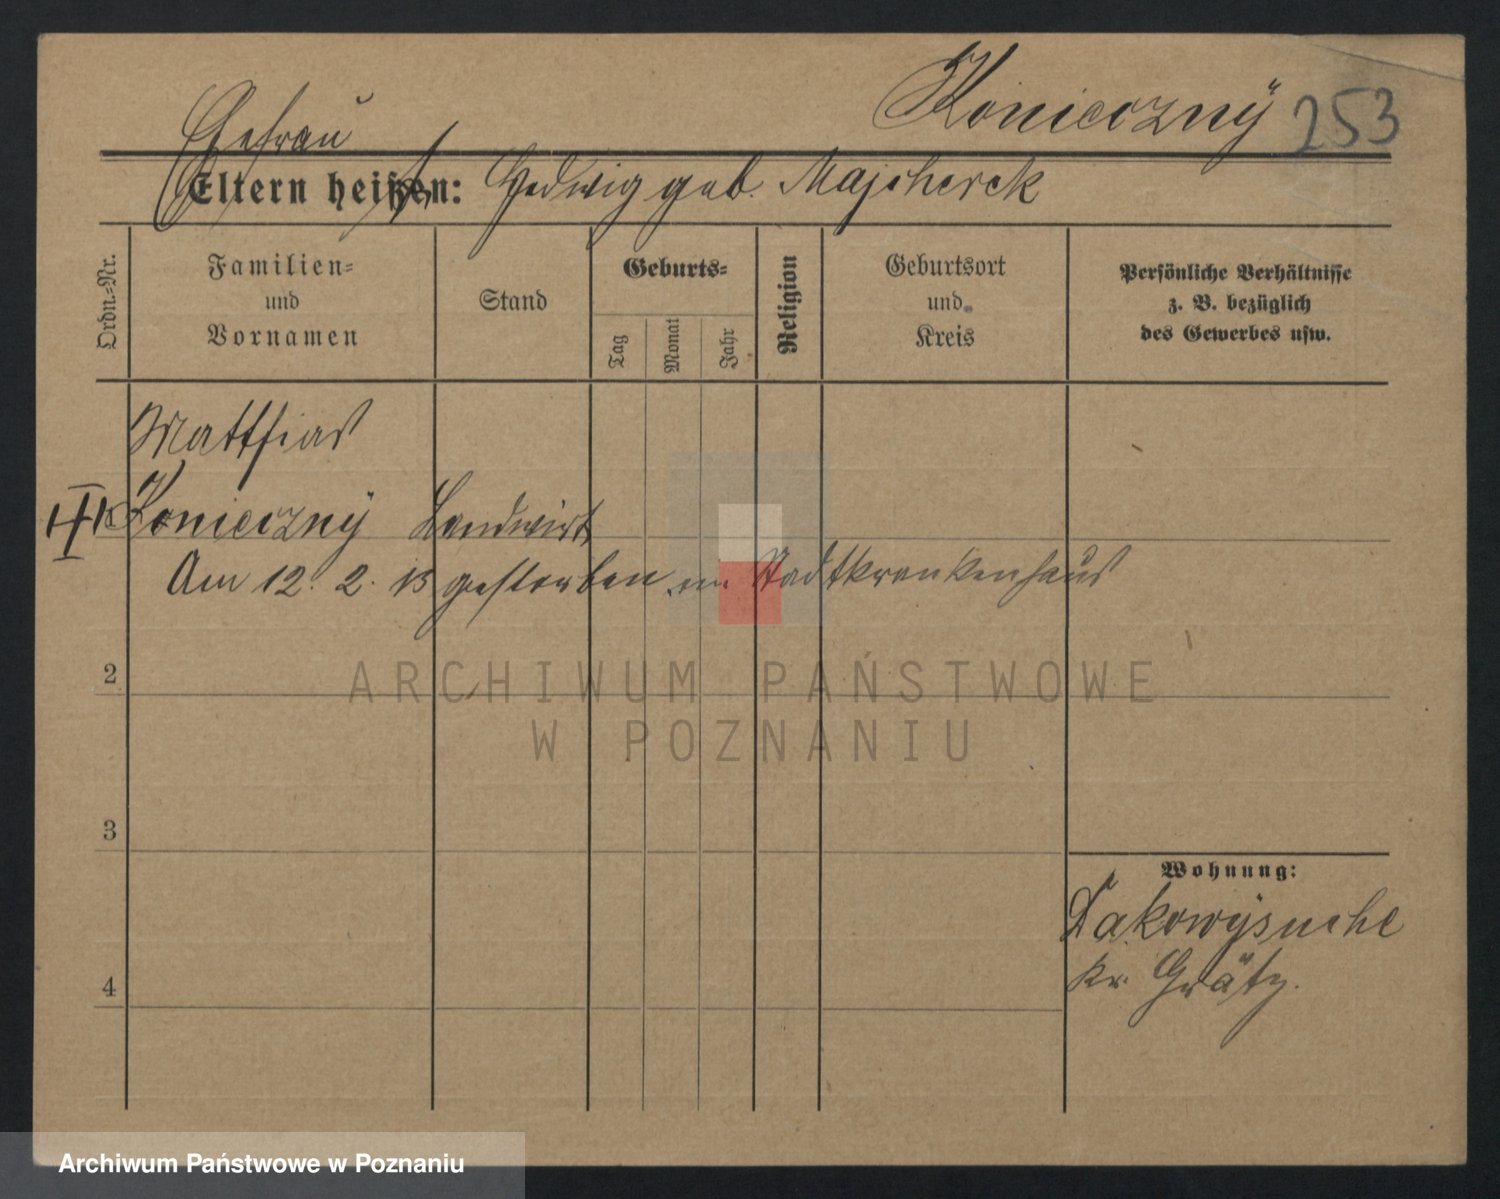 Konieczny 253
Ehefrau
Eltern heißen: Hedwig geb. Majcherek
Ordn.-Nr.
Familien-
und
Vornamen
Stand
Geburts-
Tag
Monat
Jahr
Religion
Geburtsort
und
Kreis
Persönliche Verhältnisse
z. B. bezüglich
des Gewerbes usw.
Matthias
1 Konieczny Landwirt
Am 12. 2. 13 gestorben im Stadtkrankenhaus
2
ARCHIWUM PAŃSTWOWE
W POZNANIU
3
Wohnung:
Zakowysuche
4
Kr. Grätz.
Archiwum Państwowe w Poznaniu